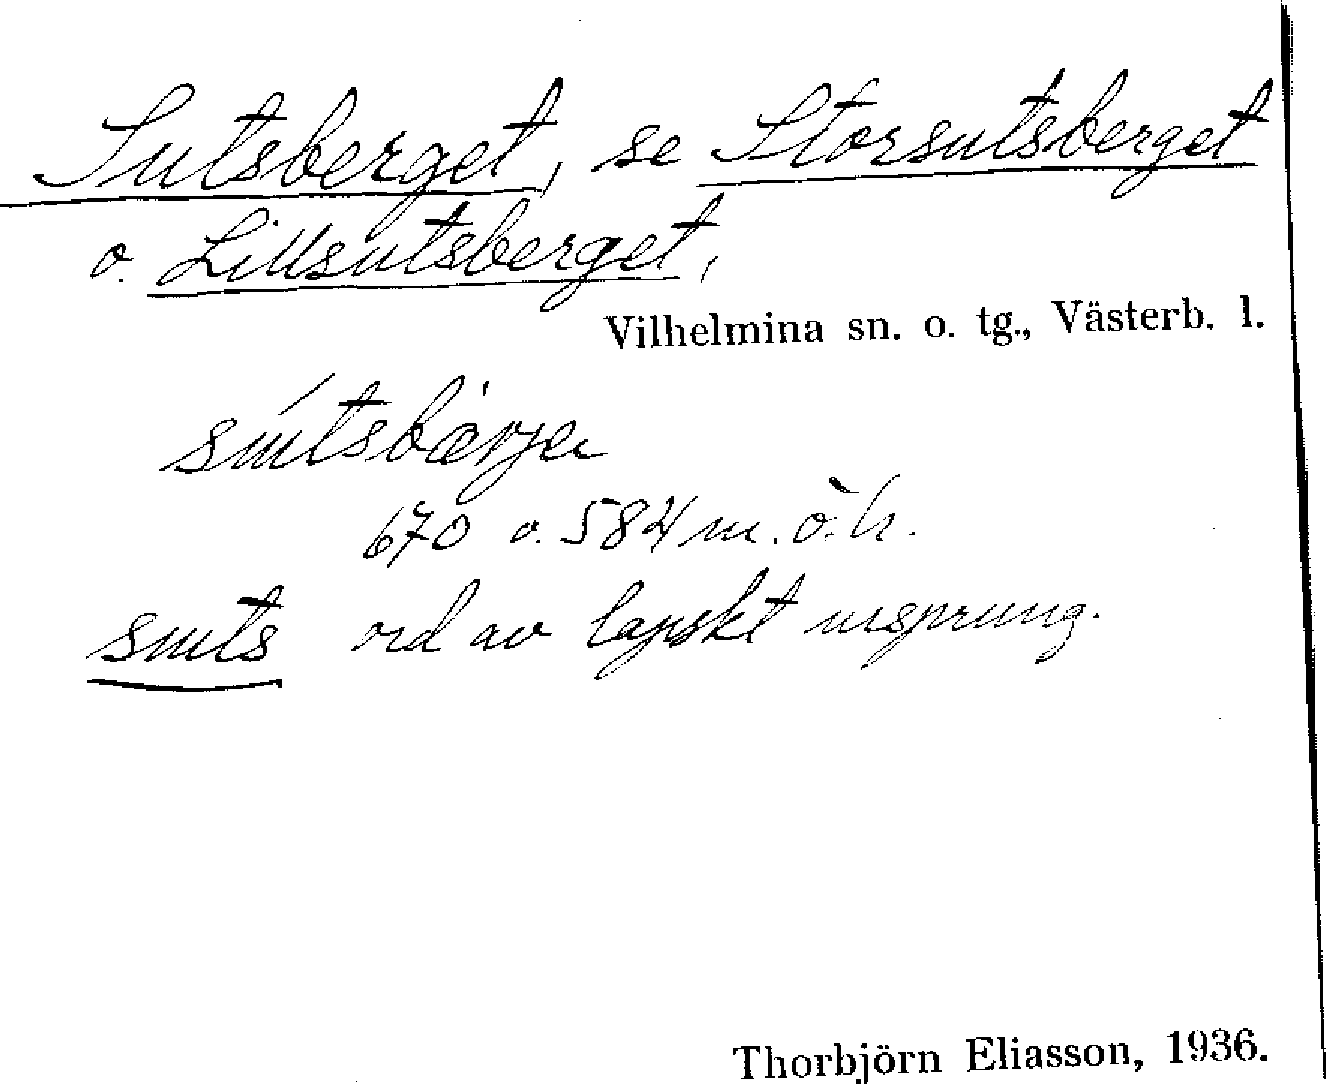 Sutsberget, se Storsutsberget
o. Lillsutsberget,
Vilhelmina sn. o. tg., Västerb. l.
670 o. 584 m. ö. h.
suts ord av lapskt ursprung.
Thorbjörn Eliasson, 1936.